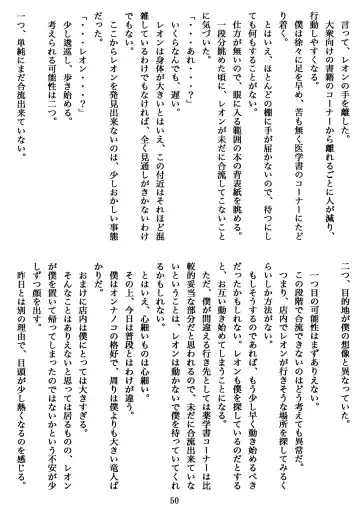 言って、レオンの手を離した。
大衆向けの書籍のコーナーから離れるごとに人が減り、
行動しやすくなる。
僕は徐々に足を早め、苦も無く医学書のコーナーにたど
り着く。
とはいえ、ほとんどの棚に手が届かないので、待つにし
ても何もすることがない。
仕方が無いので、眼に入る範囲の本の背表紙を眺める。
一段分眺めた頃に、レオンが未だに合流してこないこと
に気づいた。
「・・・あれ・・・？」
いくらなんでも、遅い。
レオンは身体が大きいとはいえ、この付近はそれほど混
雑しているわけでもなければ、全く見通しがきかないわけ
でもない。
ここからレオンを発見出来ないのは、少しおかしい事態
だ。
「・・・レオン・・・？」
少し逡巡し、歩き始める。
考えられる可能性は二つ。
一つ、単純にまだ合流出来ていない。
二つ、目的地が僕の想像と異なっていた。
一つ目の可能性はまずありえない。
この段階で合流できないのはどう考えても異常だ。
つまり、店内でレオンが行きそうな場所を探してみるく
らいしか方法がない。
もしそうするのであれば、もう少し早く動き始めるべき
だったかもしれない。レオンも僕を探しているのだとする
と、お互い動き始めてしまうことになる。
ただ、僕が間違える行き先としては薬学書コーナーは比
較的妥当な部分だと思われるので、未だに合流出来ていな
いということは、レオンは動かないで僕を待っていてくれ
るかもしれない。
とはいえ、心細いものは心細い。
その上、今日は普段とはわけが違う。
僕はオンナノコの格好で、周りは僕よりも大きい竜人ば
かりだ。
おまけに店内は僕にとっては大きすぎる。
そんなことはありえないと思っては居るものの、レオン
が僕を置いて帰ってしまったのではないかという不安が少
しずつ顔を出す。
昨日とは別の理由で、目頭が少し熱くなるのを感じる。
50